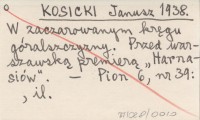 KOSICKI Janusz 1938.
W zaczarowanym kręgu
góralszczyzny. Przed war-
szawską premierą „Harna-
siów". — Pion 6, nr 39:
, il.